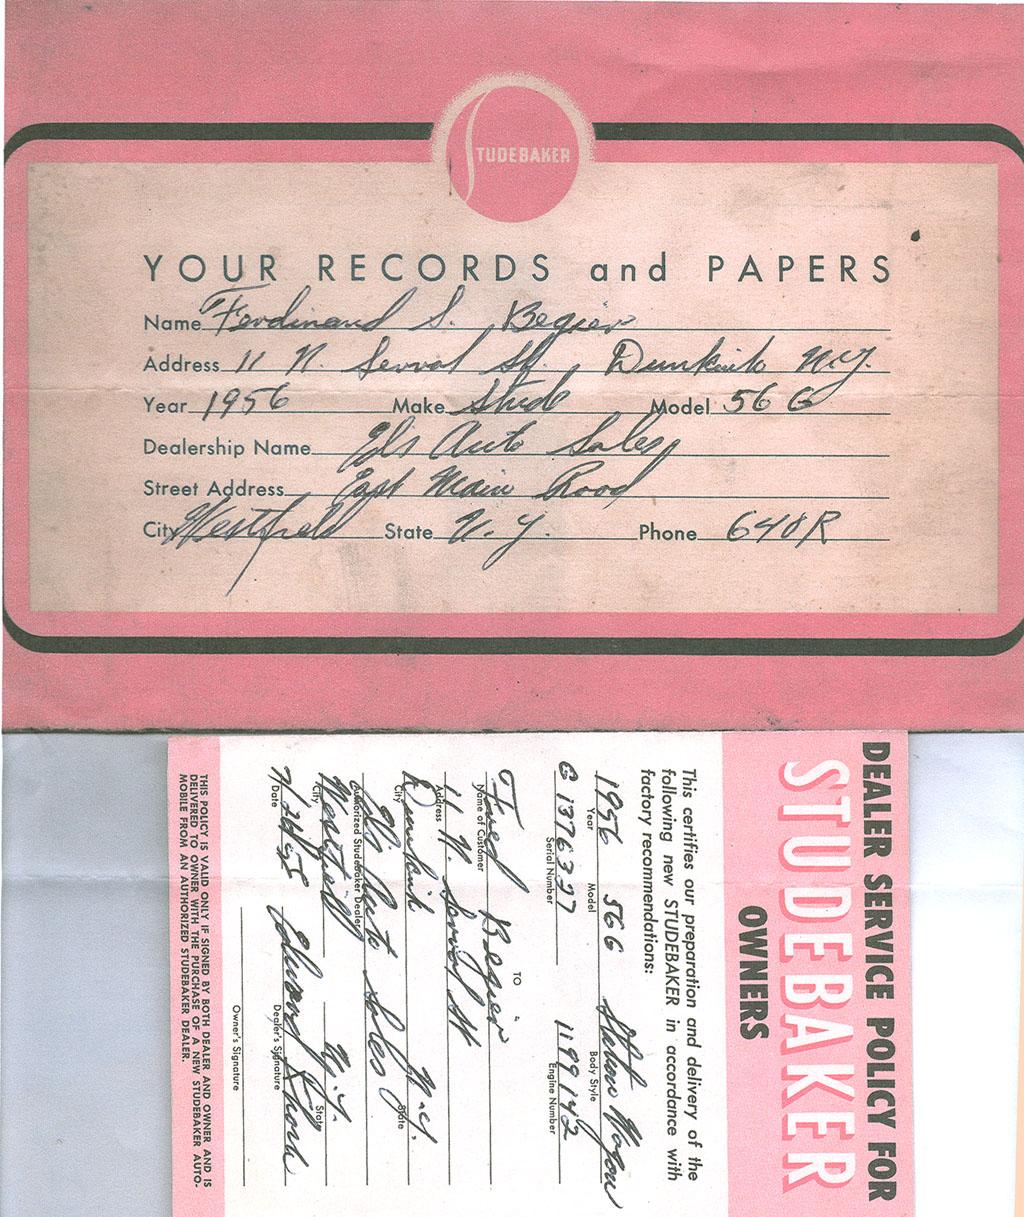 STUDEBAKER
YOUR RECORDS and PAPERS
Name Ferdinand S. Begier
Address 11 N. Serval St. Dunkirk N.Y.
Year 1956 Make Stude Model 56 G
Dealership Name Els Auto Sales
Street Address East Main Road
City Westfield State N.Y. Phone 640R
DEALER SERVICE POLICY FOR
STUDEBAKER
OWNERS
This certifies our preparation and delivery of the
following new STUDEBAKER in accordance with
factory recommendations:
1956 56G Station Wagon
Year Model Body Style
G 1376327 1199142
Serial Number Engine Number
TO
Fred Begier
Name of Customer
11 N. St
Address
Dunkirk N.Y.
City State
Els Auto Sales
Authorized Studebaker Dealer
Westfield N.Y.
City State
Edward
Date Dealer's Signature
Owner's Signature
THIS POLICY IS VALID ONLY IF SIGNED BY BOTH DEALER AND OWNER AND IS
DELIVERED TO OWNER WITH THE PURCHASE OF A NEW STUDEBAKER AUTO-
MOBILE FROM AN AUTHORIZED STUDEBAKER DEALER.